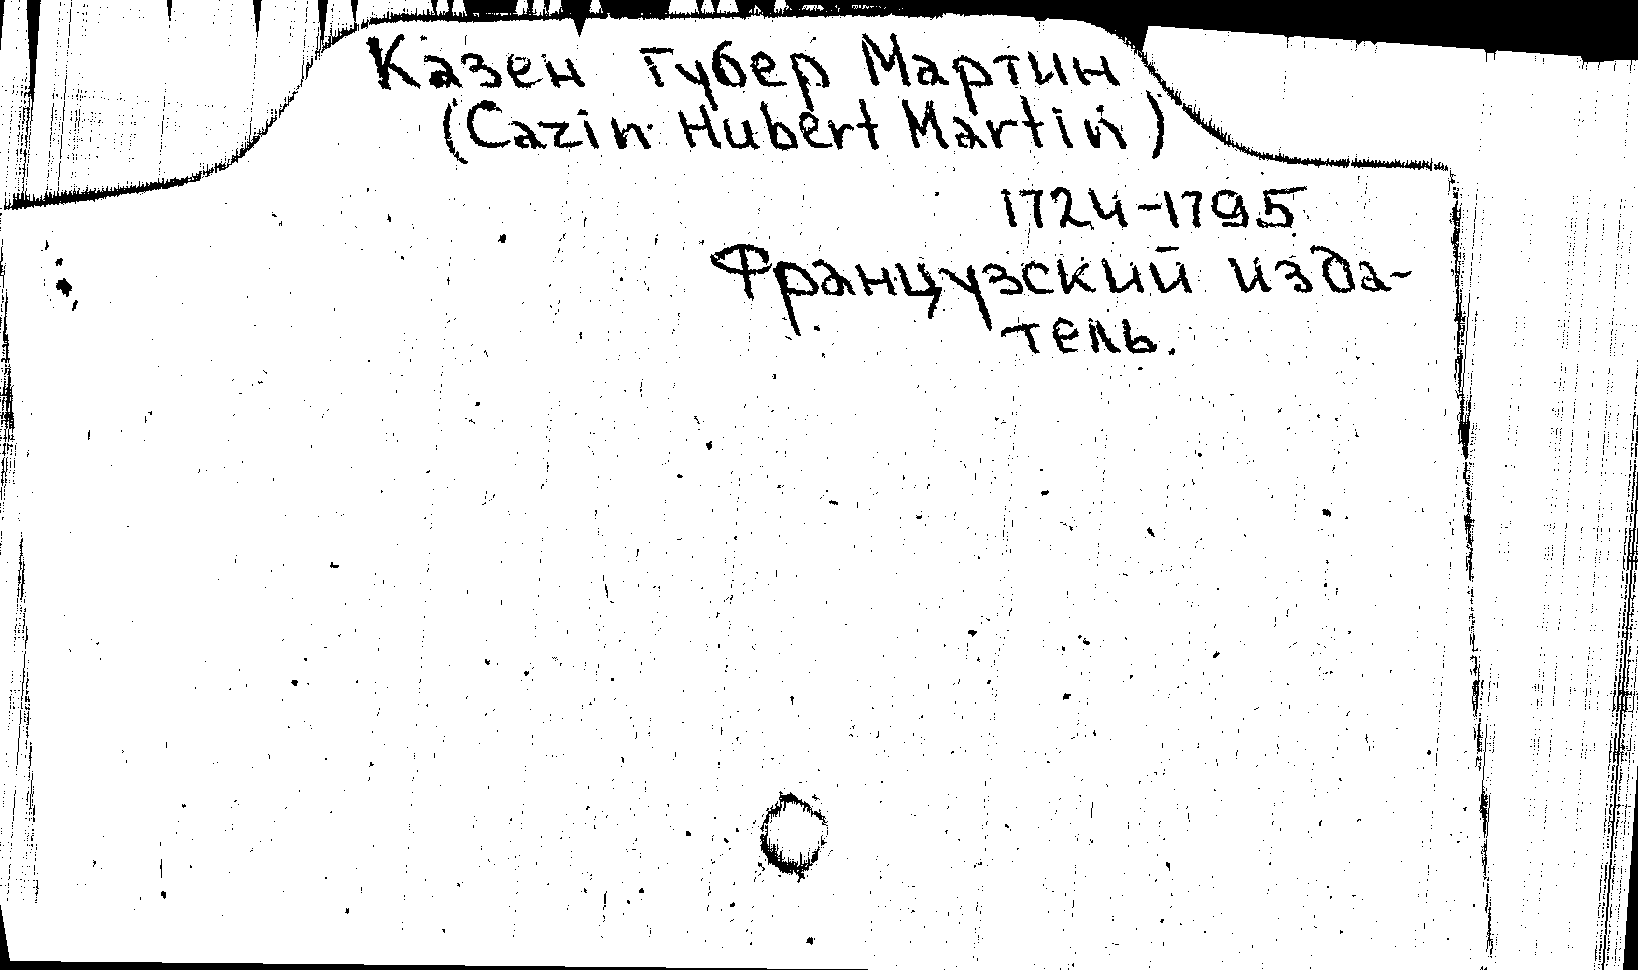 Казен Губер Мартин
(Cazin Hubert Martin)
1724-1795
Французский изда-
тель.